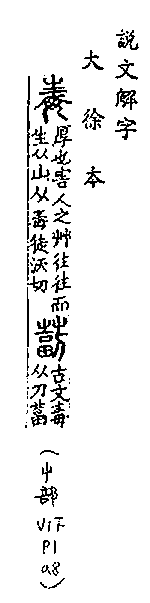 說文解字
大徐本
毒
厚也害人之艸往往而
生从屮从毒徒沃切
古文毒
从刀葍
(屮部 V1下 P1 a8)